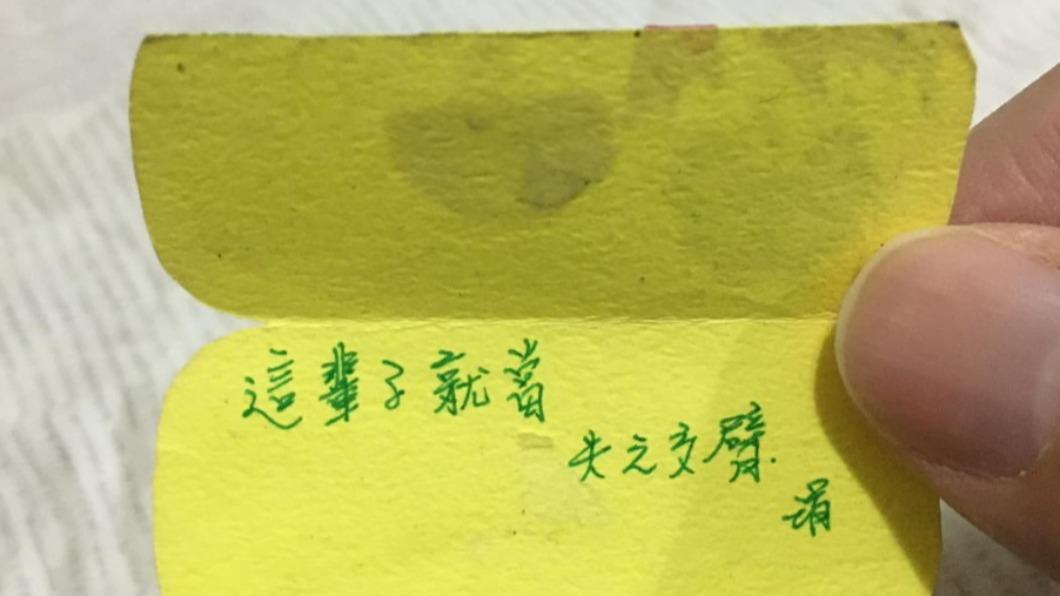 這輩子就當
失之交臂.
涓